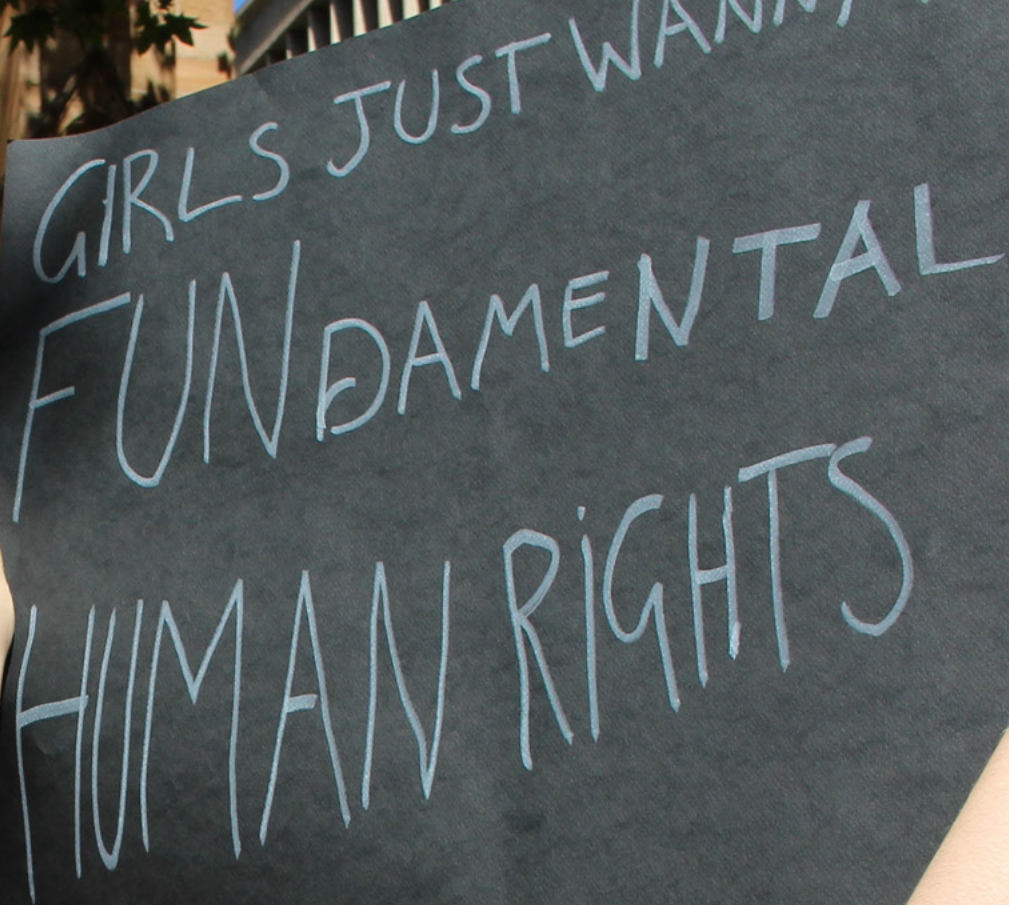 GIRLS JUST WANNA
FUNDAMENTAL
HUMAN RiGHTS